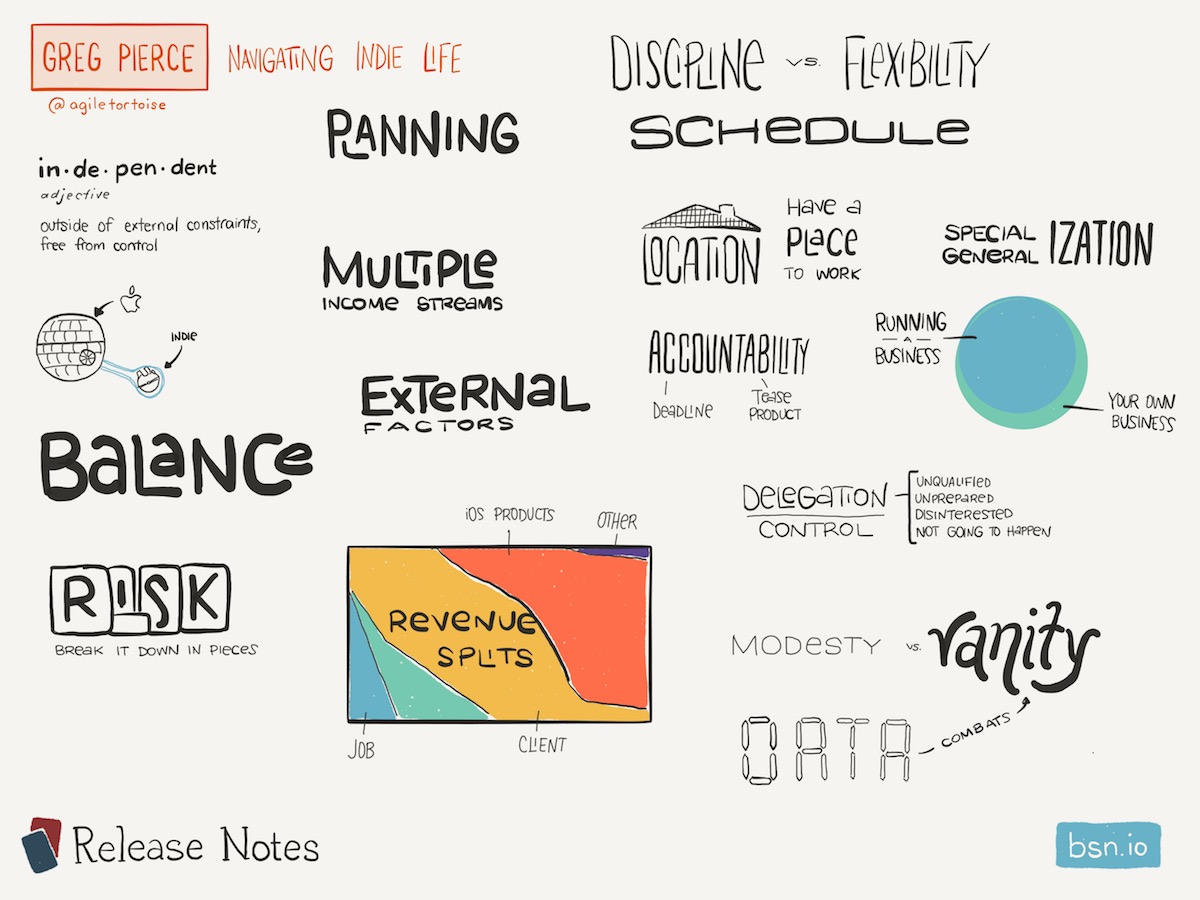 GREG PIERCE NAVIGATING INDIE LIFE
@agiletortoise
in·de·pen·dent
adjective
outside of external constraints,
free from control
INDIE
BALANCE
RISK
BREAK IT DOWN IN PIECES
PLANNING
MULTIPLE
INCOME STREAMS
EXTERNAL
FACTORS
iOS PRODUCTS
OTHER
REVENUE
SPLITS
JOB
CLIENT
DISCIPLINE vs. FLEXIBILITY
SCHEDULE
LOCATION
HAVE A
PLACE
TO WORK
ACCOUNTABILITY
DEADLINE
TEASE
PRODUCT
SPECIAL
GENERAL
IZATION
RUNNING
A
BUSINESS
YOUR OWN
BUSINESS
DELEGATION
CONTROL
UNQUALIFIED
UNPREPARED
DISINTERESTED
NOT GOING TO HAPPEN
MODESTY vs. vanity
DATA
COMBATS
Release Notes
bsn.io